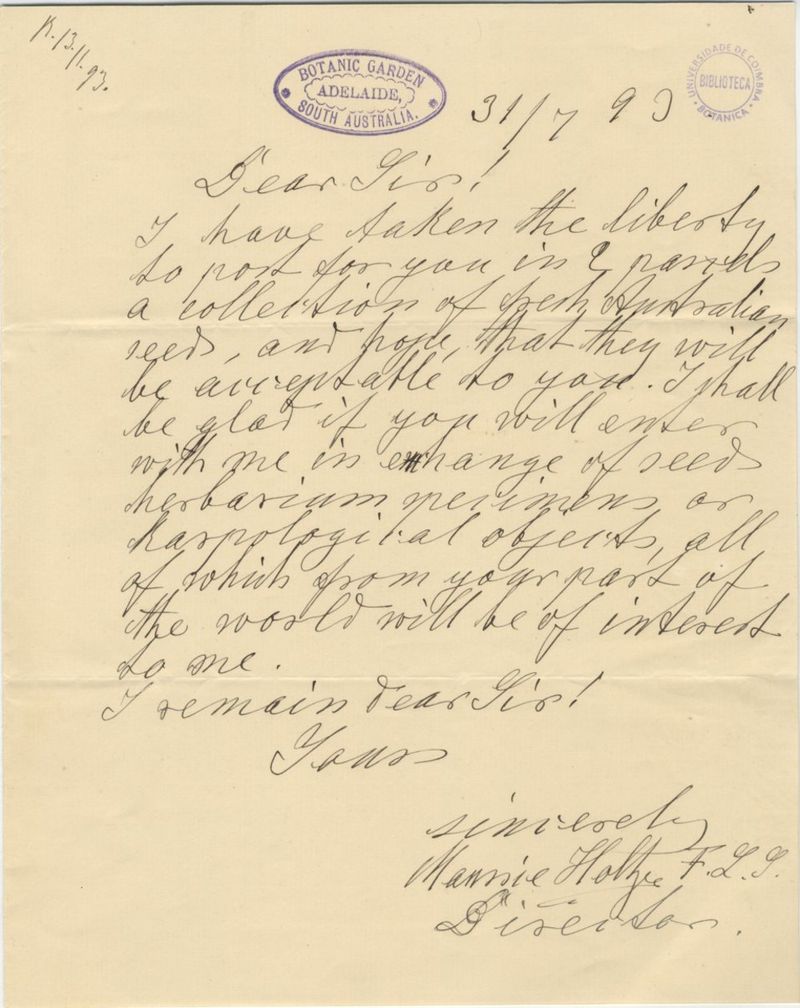 K. 13. 11. 93.
BOTANIC GARDEN
ADELAIDE,
SOUTH AUSTRALIA.
31/7 93
UNIVERSIDADE DE COIMBRA
BIBLIOTECA
BOTANICA
Dear Sir!
I have taken the liberty
to post for you in 2 parcels
a collection of fresh Australian
seeds, and hope, that they will
be acceptable to you. I shall
be glad if you will enter
with me in exchange of seeds
herbarium specimens or
karpological objects, all
of which from your part of
the world will be of interest
to me.
I remain dear Sir!
Yours
sincerely
Maurice Holtze F.L.S.
Director.